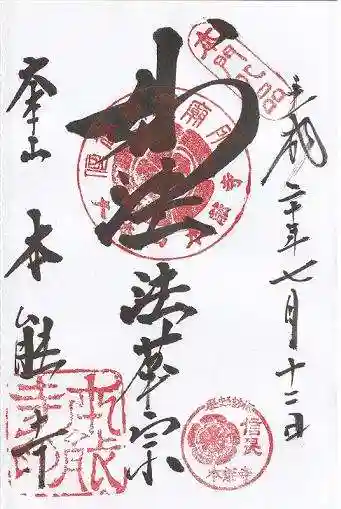 平成二十年七月十二日
本門八品
妙法
法華宗
奉山
本能寺
本能寺印
信長
本能寺